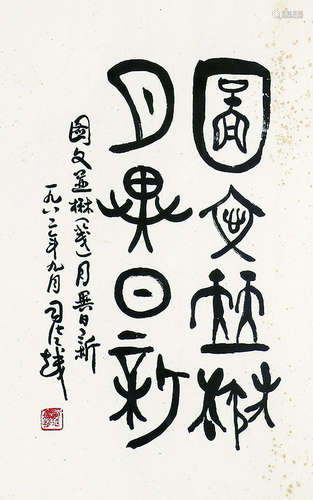 圖文並楙
月異日新
圖文並楙(茂)月異日新
一九八二年九月 司徒越